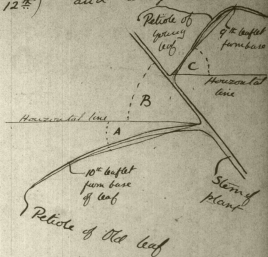 12th) and
Petiole of
young
leaf
9th leaflet
from base
C
Horizontal
line
B
Horizontal line
A
10th leaflet
from base
of leaf
Stem of
plant
Petiole of Old leaf